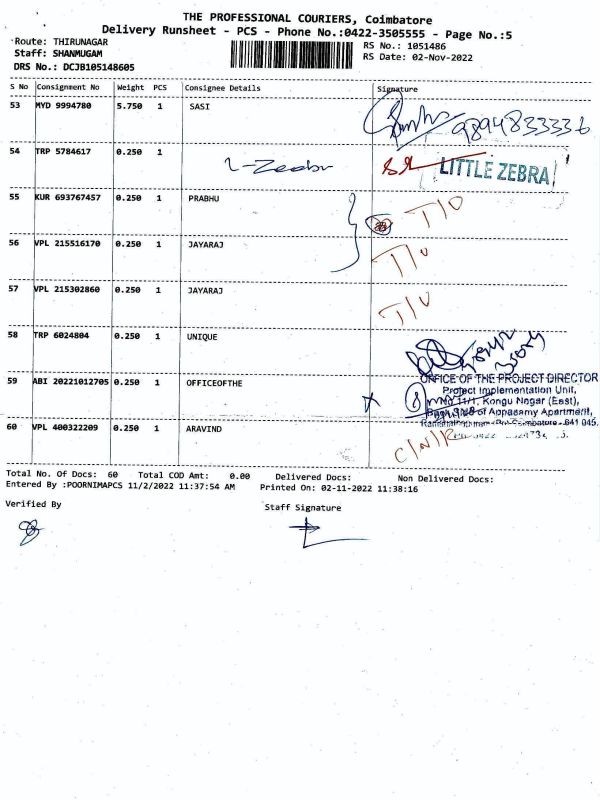 THE PROFESSIONAL COURIERS, Coimbatore
Delivery Runsheet - PCS - Phone No.:0422-3505555 - Page No.:5
Route: THIRUNAGAR
RS No.: 1051486
Staff: SHANMUGAM
RS Date: 02-Nov-2022
DRS No.: DCJB105148605
S No Consignment No Weight PCS Consignee Details Signature
53 MYD 9994780 5.750 1 SASI
9894833336
54 TRP 5784617 0.250 1 L-Zeebr LITTLE ZEBRA
55 KUR 693767457 0.250 1 PRABHU T/O
56 VPL 215516170 0.250 1 JAYARAJ T/O
57 VPL 215302860 0.250 1 JAYARAJ T/O
58 TRP 6024804 0.250 1 UNIQUE
59 ABI 20221012705 0.250 1 OFFICEOFTHE
OFFICE OF THE PROJECT DIRECTOR
Project Implementation Unit,
Kongu Nagar (East),
of Appasamy Apartment,
641 045.
60 VPL 400322209 0.250 1 ARAVIND C/N/R
Total No. Of Docs: 60 Total COD Amt: 0.00 Delivered Docs: Non Delivered Docs:
Entered By :POORNIMAPCS 11/2/2022 11:37:54 AM Printed On: 02-11-2022 11:38:16
Verified By
Staff Signature